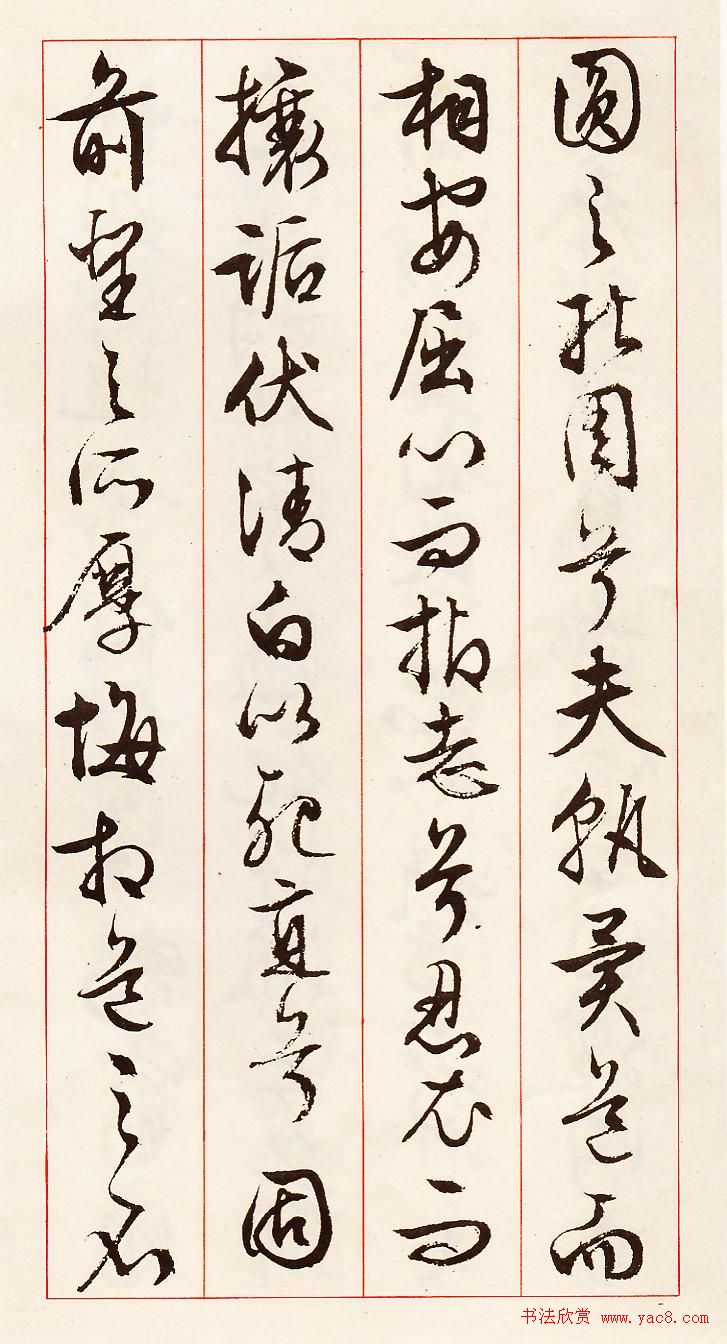 圓之能周兮夫孰異道而
相安屈心而抑志兮忍尤而
攘詬伏清白以死直兮固
前聖之所厚悔相道之不
书法欣赏 www.yac8.com